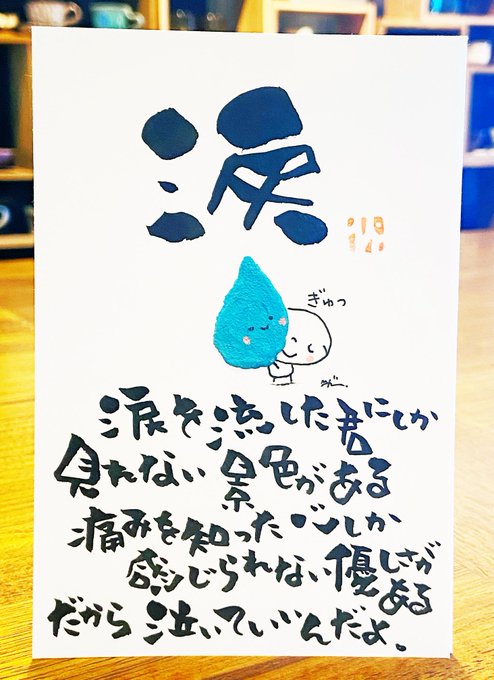 涙
ぎゅっ
涙を流した君にしか
見れない景色がある
痛みを知った心しか
感じられない優しさが
ある
だから泣いていいんだよ。